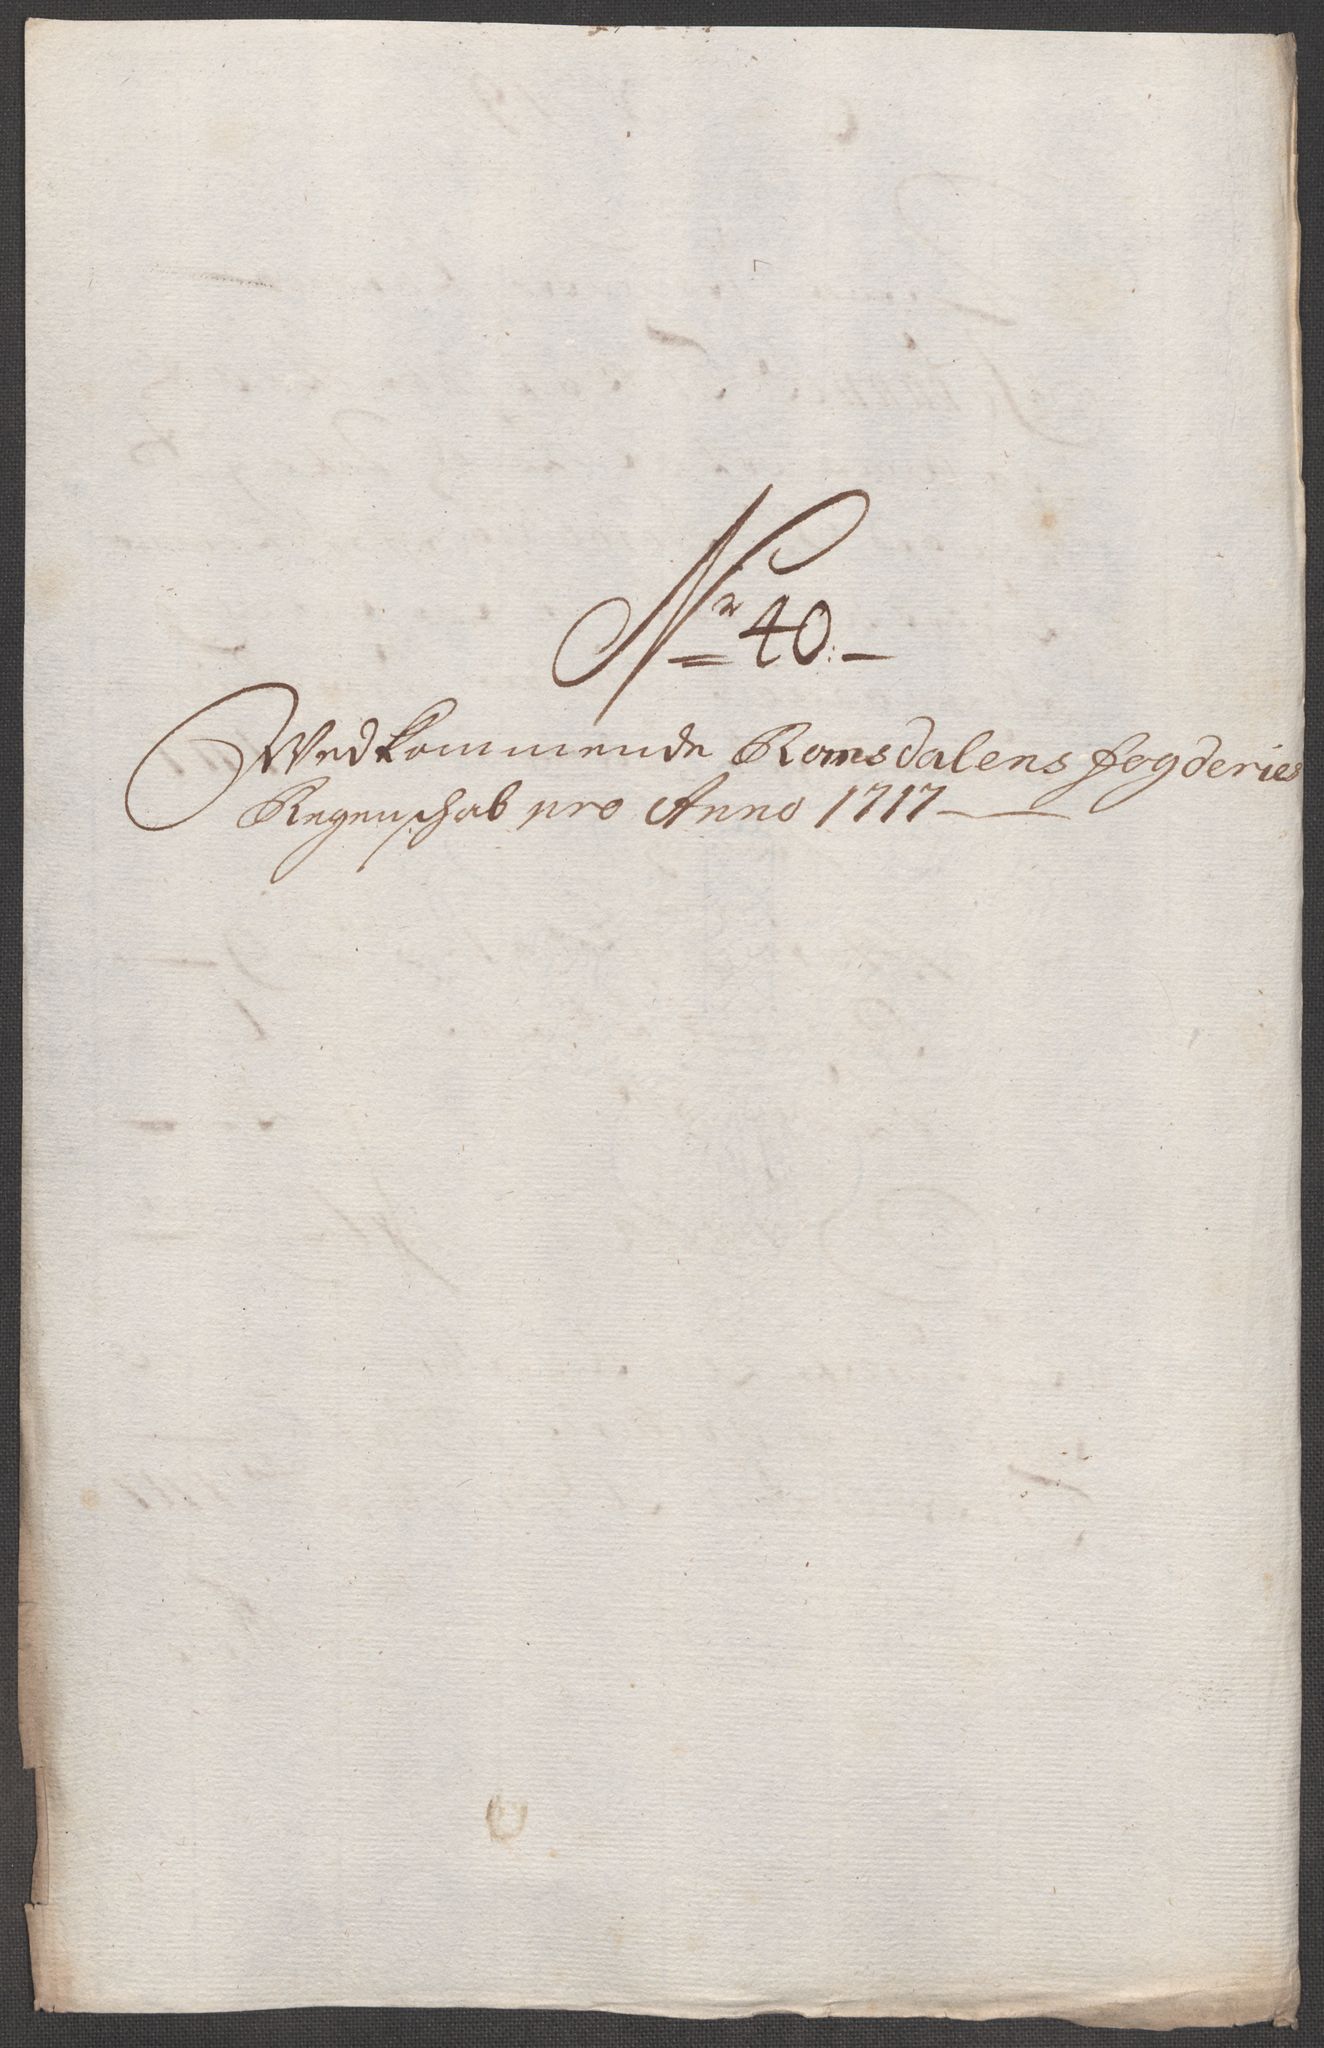 Nr 40.
Wedkommende Romsdalens fogderies
Regenschab pro Anno 1717